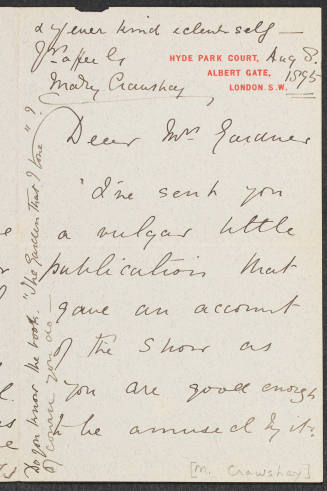 & yr ever kind & dear self —
Yrs affectly
Mary Crawshay
HYDE PARK COURT,
ALBERT GATE,
LONDON. S.W.
Aug 8.
1895
Dear Mrs Gardner
I've sent you
a vulgar little
publication that
gave an account
of the Show as
you are good enough
to be amused by it.
Do you know the book. "The Garden that I love"?
of course you do —
[M. Crawshay]